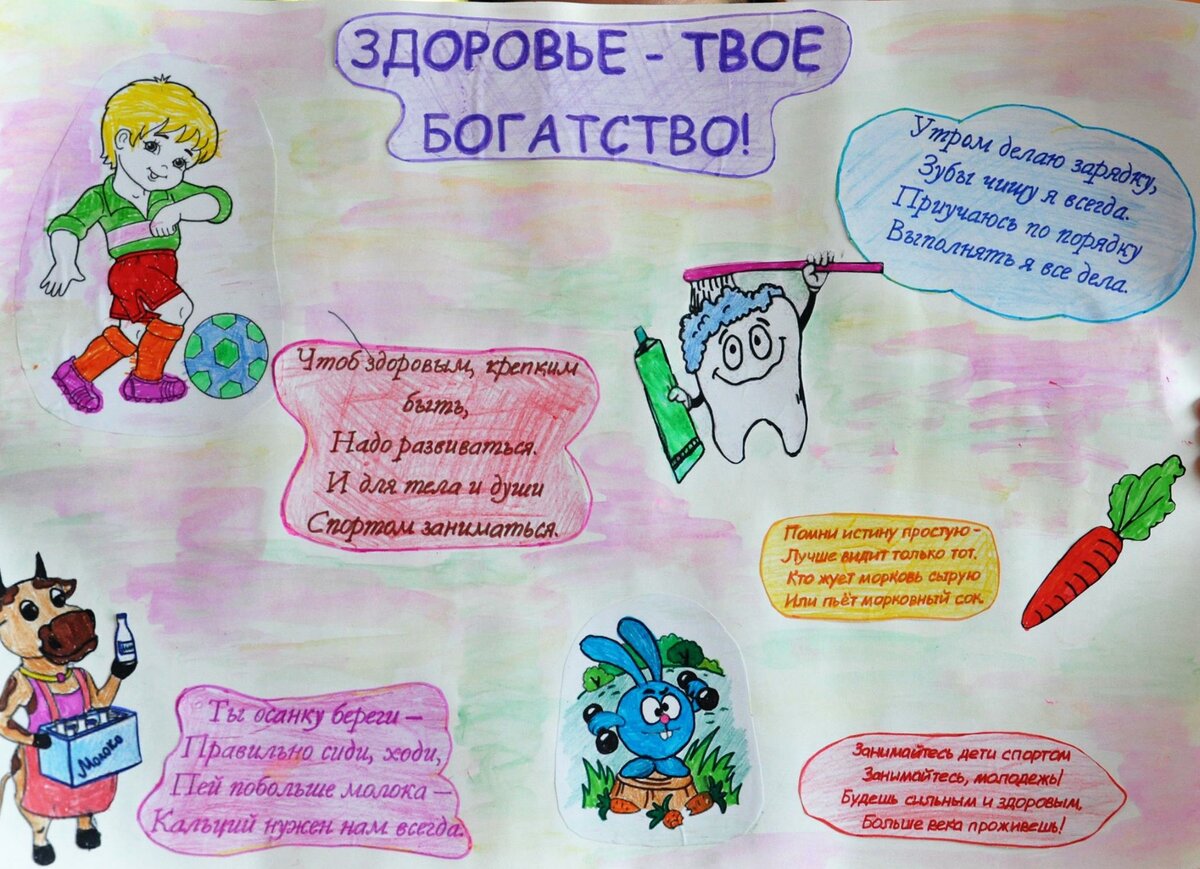 ЗДОРОВЬЕ - ТВОЕ
БОГАТСТВО!
Утром делаю зарядку,
Зубы чищу я всегда.
Приучаюсь по порядку
Выполнять я все дела.
Чтоб здоровым, крепким
быть,
Надо развиваться.
И для тела и души
Спортом заниматься.
Помни истину простую -
Лучше видит только тот,
Кто жует морковь сырую
Или пьёт морковный сок.
Ты осанку береги –
Правильно сиди, ходи,
Пей побольше молока –
Кальций нужен нам всегда.
Молоко
Занимайтесь дети спортом
Занимайтесь, молодежь!
Будешь сильным и здоровым,
Больше века проживешь!